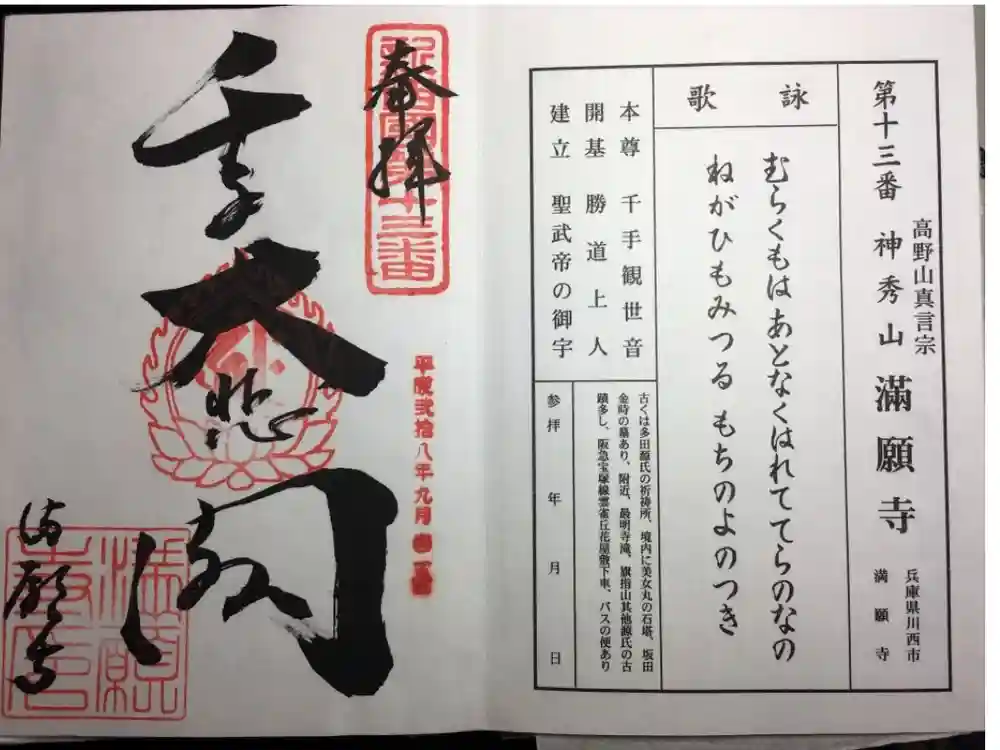 第十三番 神秀山 滿願寺
高野山真言宗
兵庫県川西市
満願寺
詠歌
むらくもはあとなくはれててらのなの
ねがひもみつる もちのよのつき
本尊 千手観世音
開基 勝道上人
建立 聖武帝の御宇
古くは多田源氏の祈祷所、境内に美女丸の石塔、坂田
金時の墓あり、附近、最明寺滝、旗指山其他源氏の古
蹟多し、阪急宝塚線雲雀丘花屋敷下車、バスの便あり
参拝 年 月 日
奉拝
十三番
平成弐拾八年九月
千手
大悲
閣
満願寺
滿願